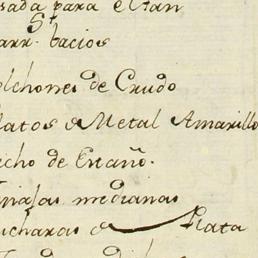 sada para el tan
St
arr. bacios
olchones de Crudo
latos de Metal Amarillo
cho de Estaño.
medianas
ucharas de Plata